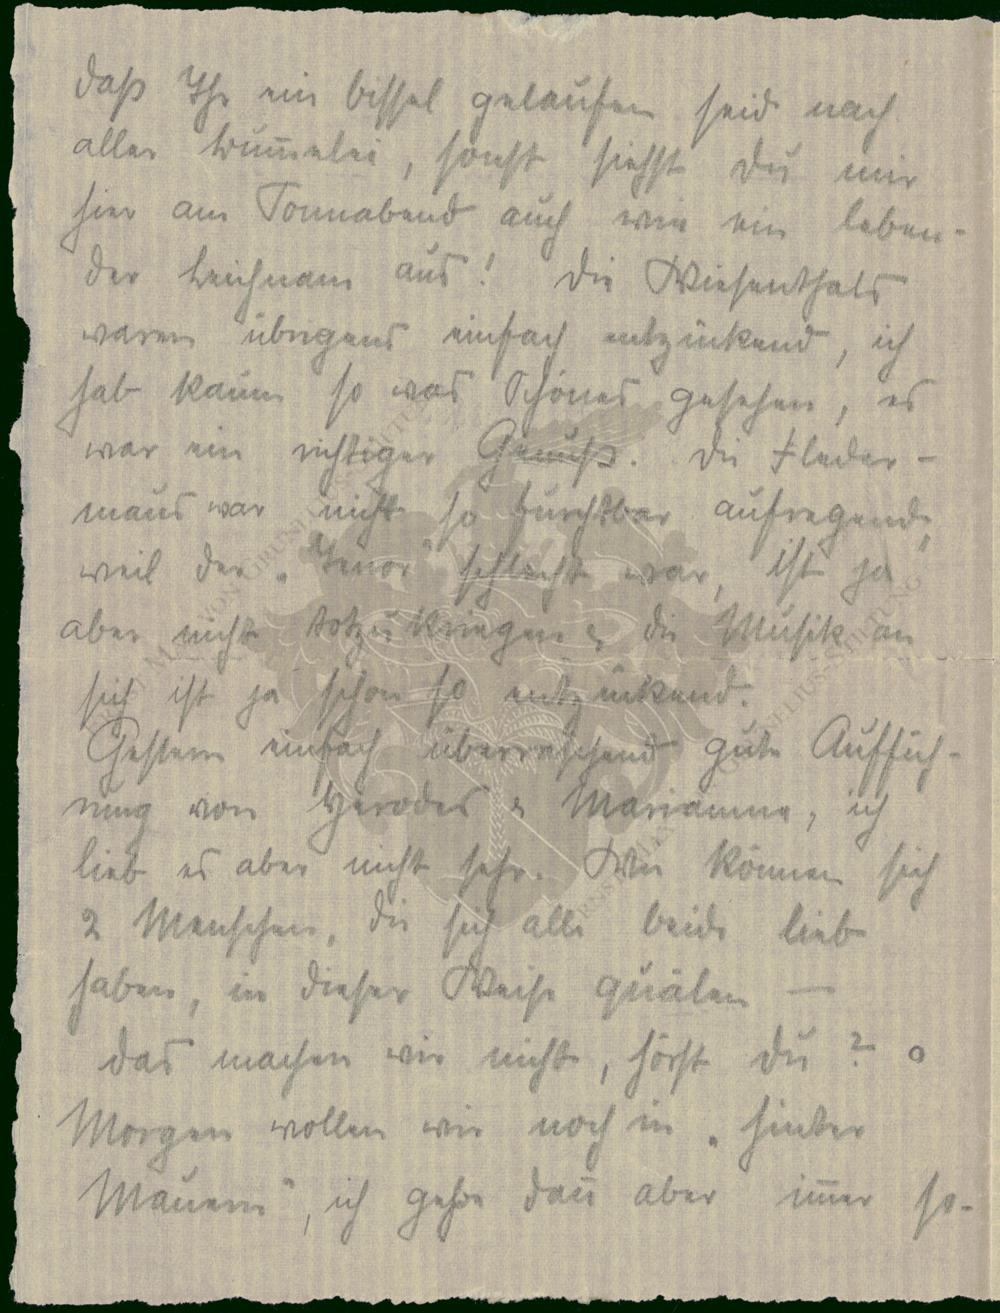 daß Ihr ein bissel gelaufen seid nach
aller Bummelei, sonst siehst Du mir
hier am Sonnabend auch wie ein leben-
der Leichnam aus! Die Wiesenthals
waren übrigens einfach entzückend, ich
hab kaum so was Schönes gesehen, es
war ein richtiger Genuß. Die Fleder-
maus war nicht so furchtbar aufregend,
weil der „Tenor“ schlecht war, ist ja
aber nicht totzukriegen & die Musik an
sich ist ja schon so entzückend.
Gestern einfach überraschend gute Auffüh-
rung von Herodes & Mariamne, ich
lieb es aber nicht sehr. Wie können sich
2 Menschen, die sich alle beide lieb
haben, in dieser Weise quälen —
das machen wir nicht, hörst Du?
Morgen wollen wir noch in „hinter
Mauern“, ich gehe dann aber immer so-